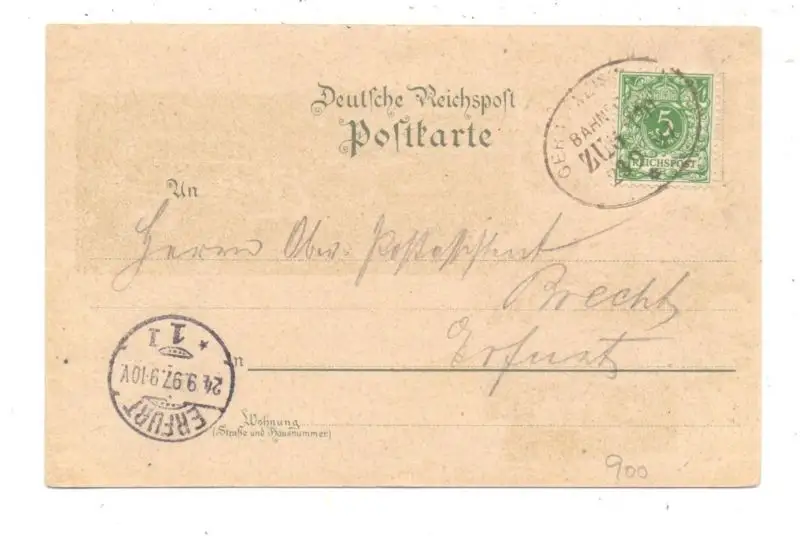 Deutsche Reichspost
Postkarte
5
REICHSPOST
BAHN
ZUG
An
Herrn Ober-Postassistent
Brecht
Erfurt
in
ERFURT
24.9.97.9-10V.
* 1 1
Wohnung
(Straße und Hausnummer)
900